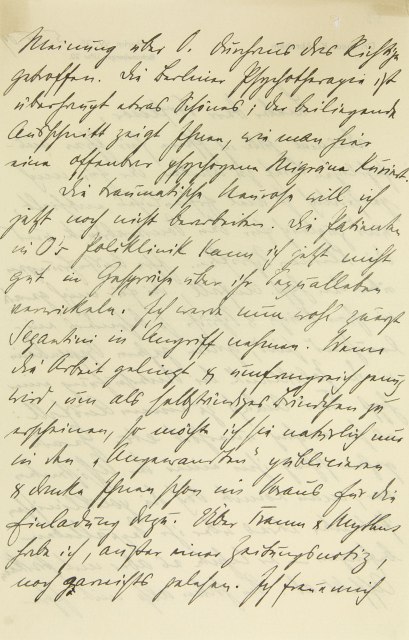 Meinung über O. durchaus das Richtige
getroffen. Die Berliner Psychotherapie ist
überhaupt etwas Schönes; der beiliegende
Ausschnitt zeigt Ihnen, wie man hier
eine offenbar psychogene Migräne kuriert.
Die traumatische Neurose will ich
jetzt noch nicht bearbeiten. Die Patienten
in O's Poliklinik kann ich jetzt nicht
gut in Gespräche über ihr Sexualleben
verwickeln. Ich werde nun wohl zuerst
Segantini in Angriff nehmen. Wenn
die Arbeit gelingt & umfangreich genug
wird, um als selbständiges Bändchen zu
erscheinen, so möchte ich sie natürlich nur
in den „Angewandten" publicieren
& danke Ihnen schon im Voraus für die
Einladung dazu. Über Traum & Mythus
habe ich, außer einer Zeitungsnotiz,
noch garnichts gelesen. Ich freue mich